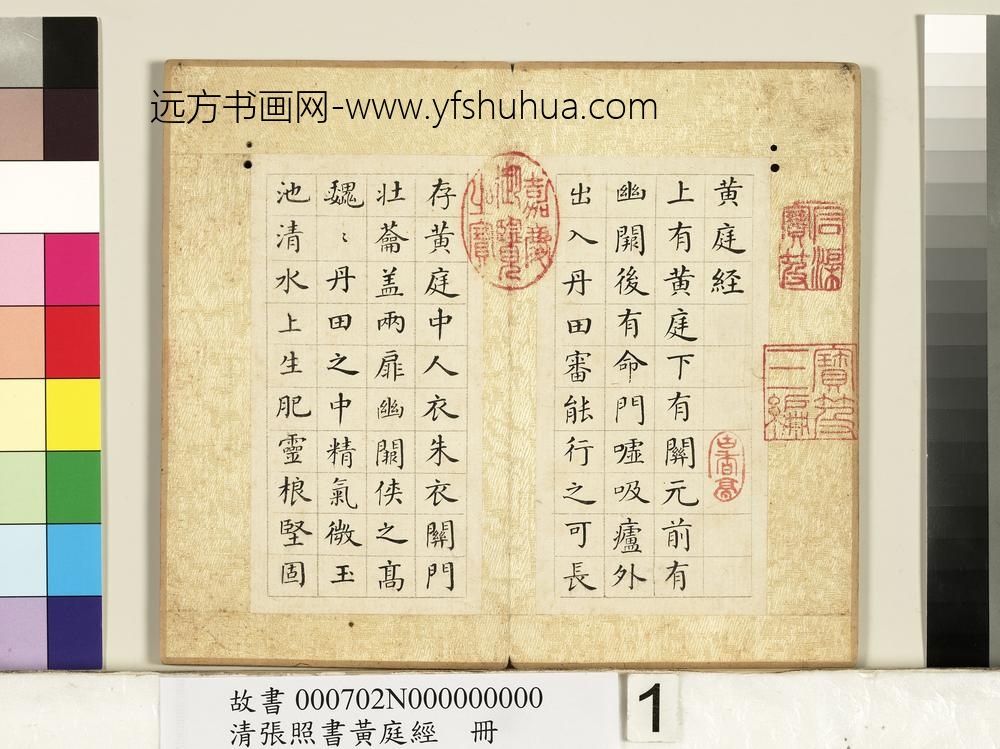 远方书画网-www.yfshuhua.com
黄庭経
上有黄庭下有關元前有
幽闕後有命門噓吸廬外
出入丹田審能行之可長
存黄庭中人衣朱衣關門
壮蘥盖兩扉幽闕侠之髙
魏〻丹田之中精氣微玉
池清水上生肥靈根堅固
嘉慶御覽之寶
石渠寶笈
寶笈三編
故書 000702N000000000
清張照書黃庭經 冊
1